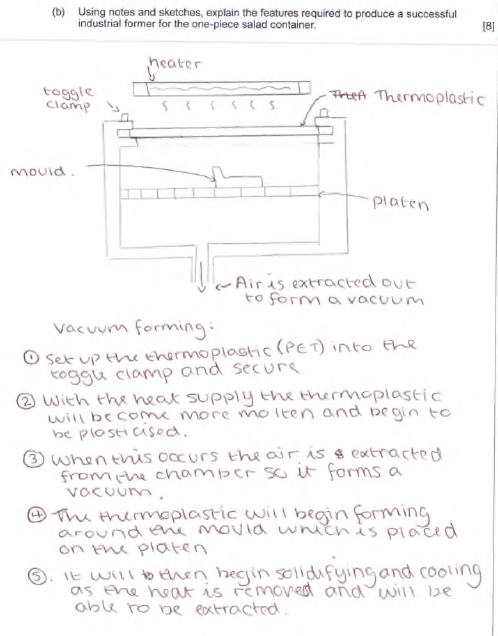 (b) Using notes and sketches, explain the features required to produce a successful
industrial former for the one-piece salad container.
[8]
heater
toggle
clamp
Thermoplastic
mould.
platen
Air is extracted out
to form a vacuum
Vacuum forming:
① Set up the thermoplastic (PET) into the
toggle clamp and secure
② With the heat supply the thermoplastic
will become more molten and begin to
be plasticised.
③ When this occurs the air is extracted
from the chamber so it forms a
vacuum.
④ The thermoplastic will begin forming
around the mould which is placed
on the platen
⑤. It will then begin solidifying and cooling
as the heat is removed and will be
able to be extracted.